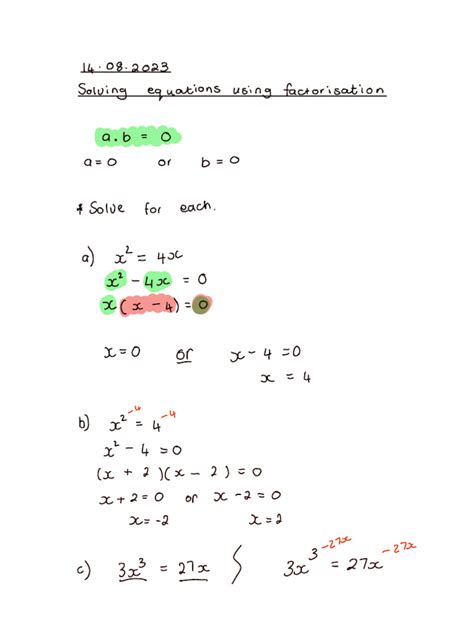 14.08.2023
Solving equations using factorisation
a.b = 0
a=0 or b=0
* Solve for each.
a) x² = 4x
x² - 4x = 0
x(x - 4) = 0
x=0 or x-4=0
x = 4
b) x² ⁻⁴ = 4 ⁻⁴
x² - 4 = 0
(x + 2)(x - 2) = 0
x+2=0 or x-2=0
x=-2 x=2
c) 3x³ = 27x ∫ 3x³ ⁻²⁷ˣ = 27x ⁻²⁷ˣ